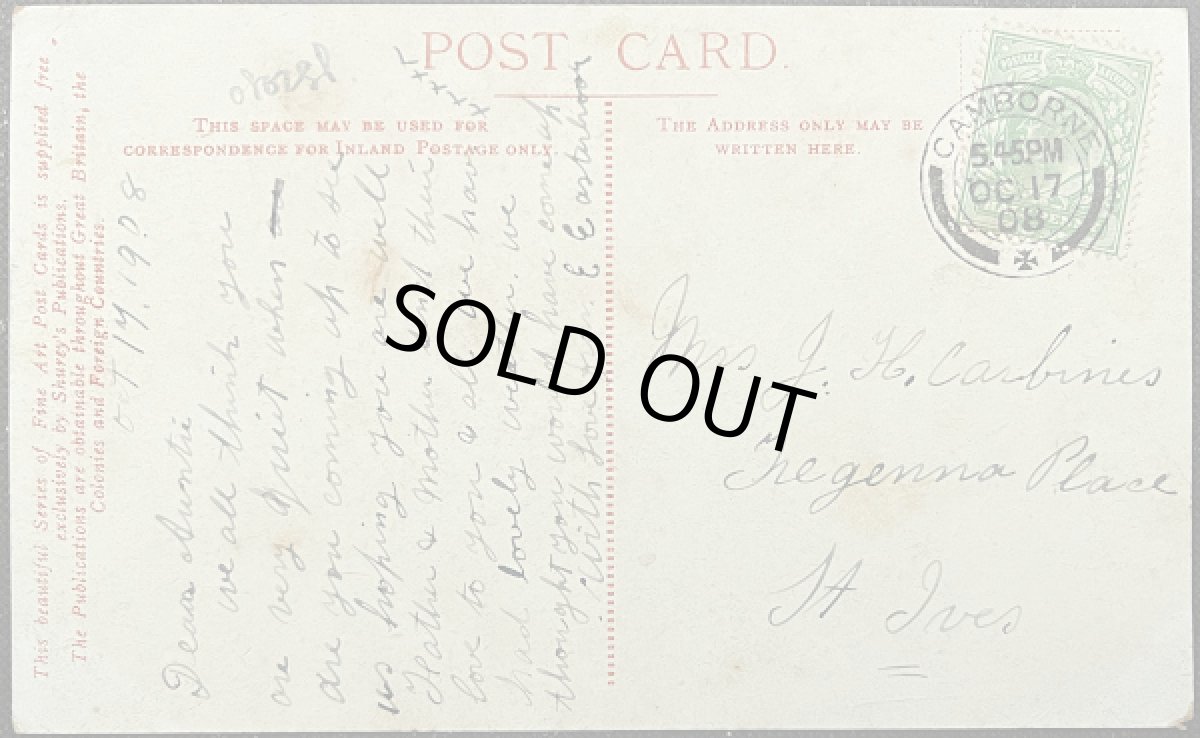 POST CARD.
THIS SPACE MAY BE USED FOR
CORRESPONDENCE FOR INLAND POSTAGE ONLY.
THE ADDRESS ONLY MAY BE
WRITTEN HERE.
This beautiful Series of Fine Art Post Cards is supplied free
exclusively by Shurey's Publications.
The Publications are obtainable throughout Great Britain, the
Colonies and Foreign Countries.
Oct 17. 1908
Dear Auntie
we all think you
are very quiet when
are you coming up to see
us hoping you are well
Father & Mother sent their
love to you & all. we have
had lovely weather. we
thought you would have come up
With love from E Easterbrook
x x x x
CAMBORNE
5.45PM
OC 17
08
Mrs J. H. Carbines
Tregenna Place
St Ives
SOLD OUT